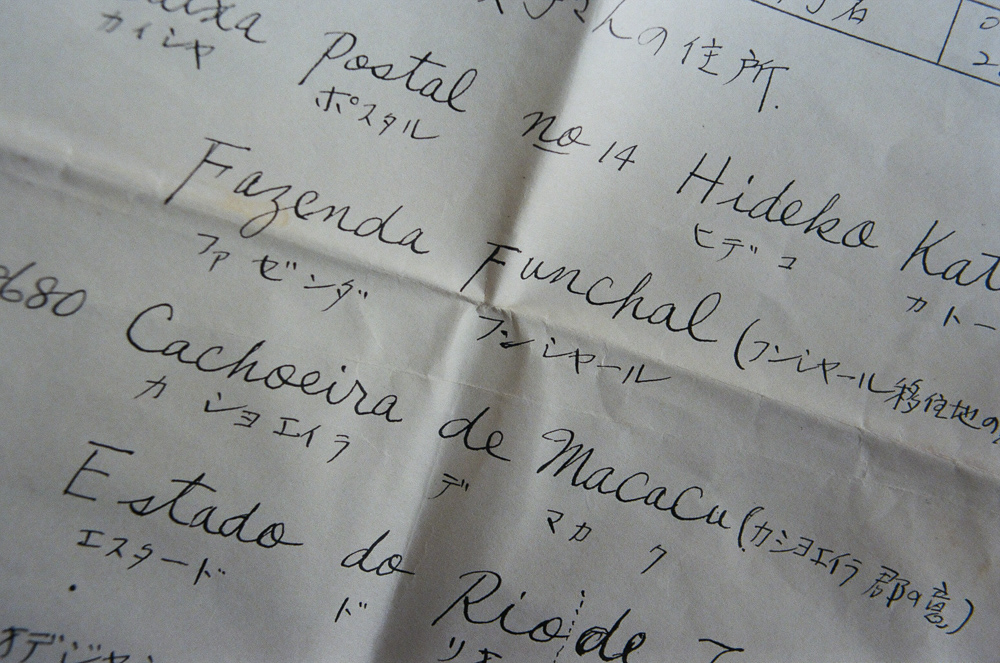 んの住所.
Postal no 14 Hideko
カイシャ ポスタル ヒデコ カトー
Fazenda Funchal (フンシャール移住地の
ファゼンダ フンシャール
680 Cachoeira de Macacu (カショエイラ郡の意)
カショエイラ デ マカク
Estado do Rio de
エスタード ド